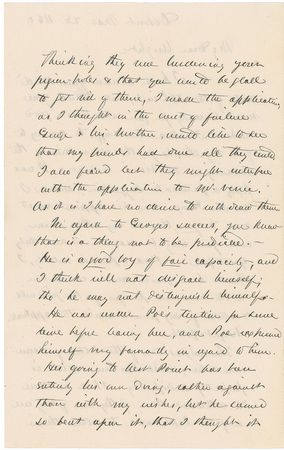 Thinking they were burdening your
pigeon holes & that you would be glad
to get rid of them, I made the application,
as I thought in the event of failure
George & his Mother, would like to see
that my friends had done all they could
I also feared lest they might interfere
with the application to Mr.
As it is I have no desire to withdraw them
In regard to George's success, you know
that is a thing not to be predicted. —
He is a good boy of fair capacity, and
I think will not disgrace himself,
tho' he may not distinguish himself —
He was under Poe's tuition for some
time before leaving here, and Poe expressed
himself very favorably in regard to him.
His going to West Point has been
entirely his own doing, rather against
than with my wishes, but he seemed
so bent upon it, that I thought it